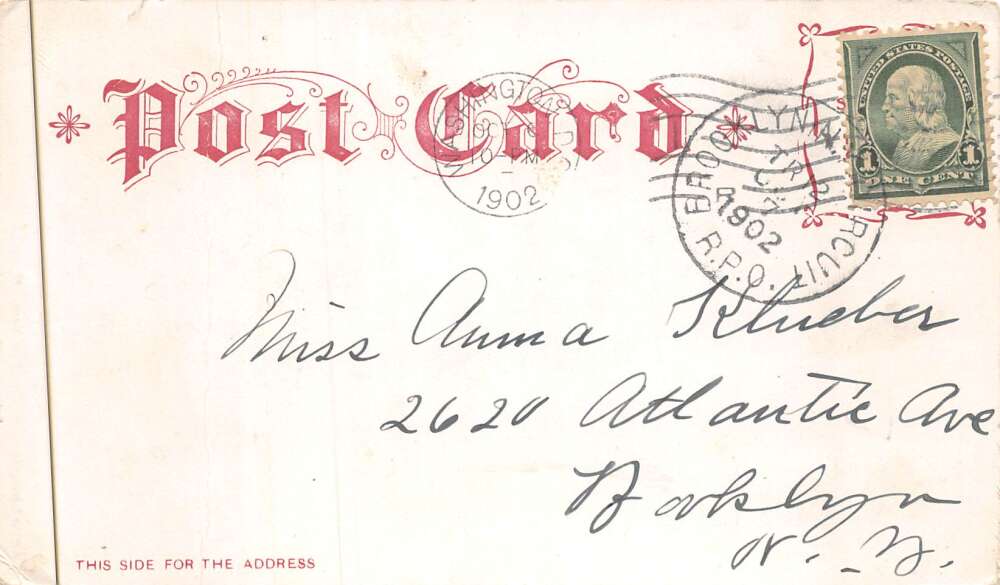 Post Card
WASHINGTON
10-PM
1902
BROOKLYN, N.Y. CIRCUIT
TR 12
1902
R.P.O.
UNITED STATES POSTAGE
1 1
ONE CENT
Miss Anna Klueber
2620 Atlantic Ave
Booklyn
N. Y.
THIS SIDE FOR THE ADDRESS